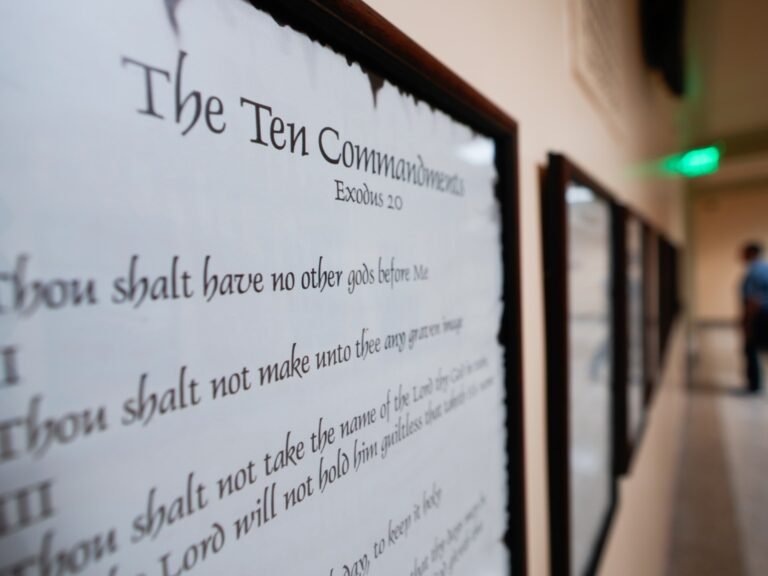 The Ten Commandments
Exodus 20
Thou shalt have no other gods before Me
II
Thou shalt not make unto thee any graven image
III
Thou shalt not take the name of the Lord thy God in vain
the Lord will not hold him guiltless that taketh His name
day, to keep it holy